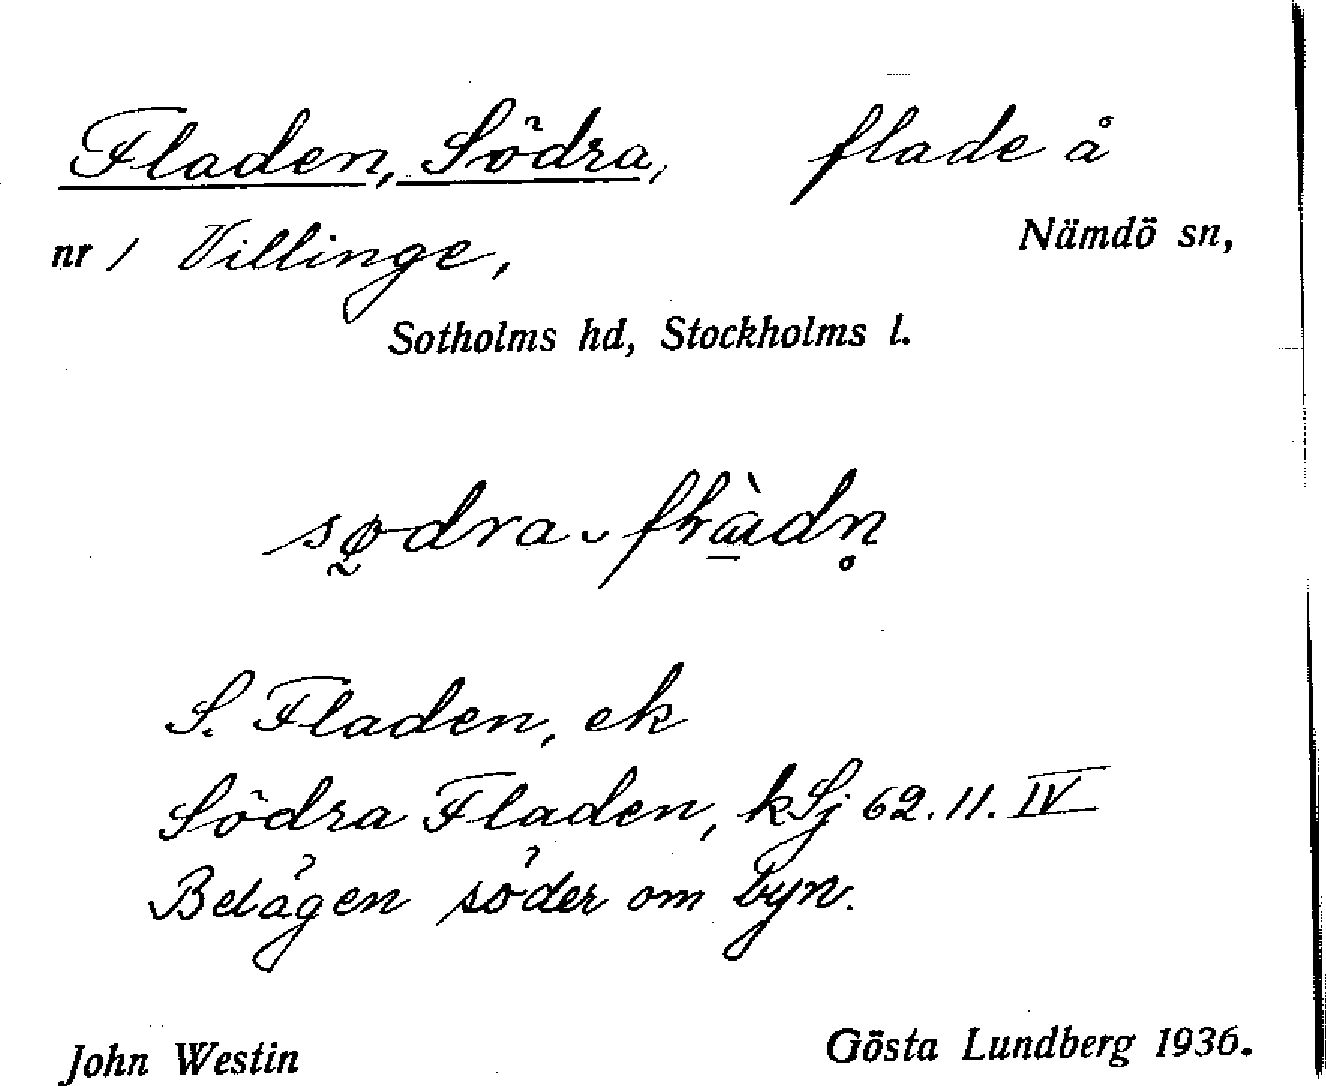 Fladen, Södra, flade å
nr 1 Villinge, Nämdö sn,
Sotholms hd, Stockholms l.
södra
S. Fladen, ek
Södra Fladen, kSj 62.11.IV
Belägen söder om byn.
John Westin Gösta Lundberg 1936.